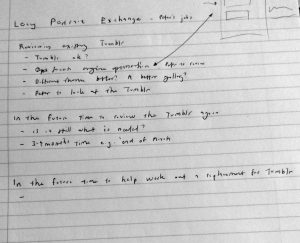 Long Portrait Exchange - Peter's jobs
Reviewing existing Tumblr
- Tumblr ok?
- front engine generation Peter to review
- Different theme better? A better gallery?
- Peter to look at the Tumblr
In the future time to review the Tumblr again
- is it still what is needed?
- 3-4 months time e.g. end of March
In the future time to help work out a replacement for Tumblr
-